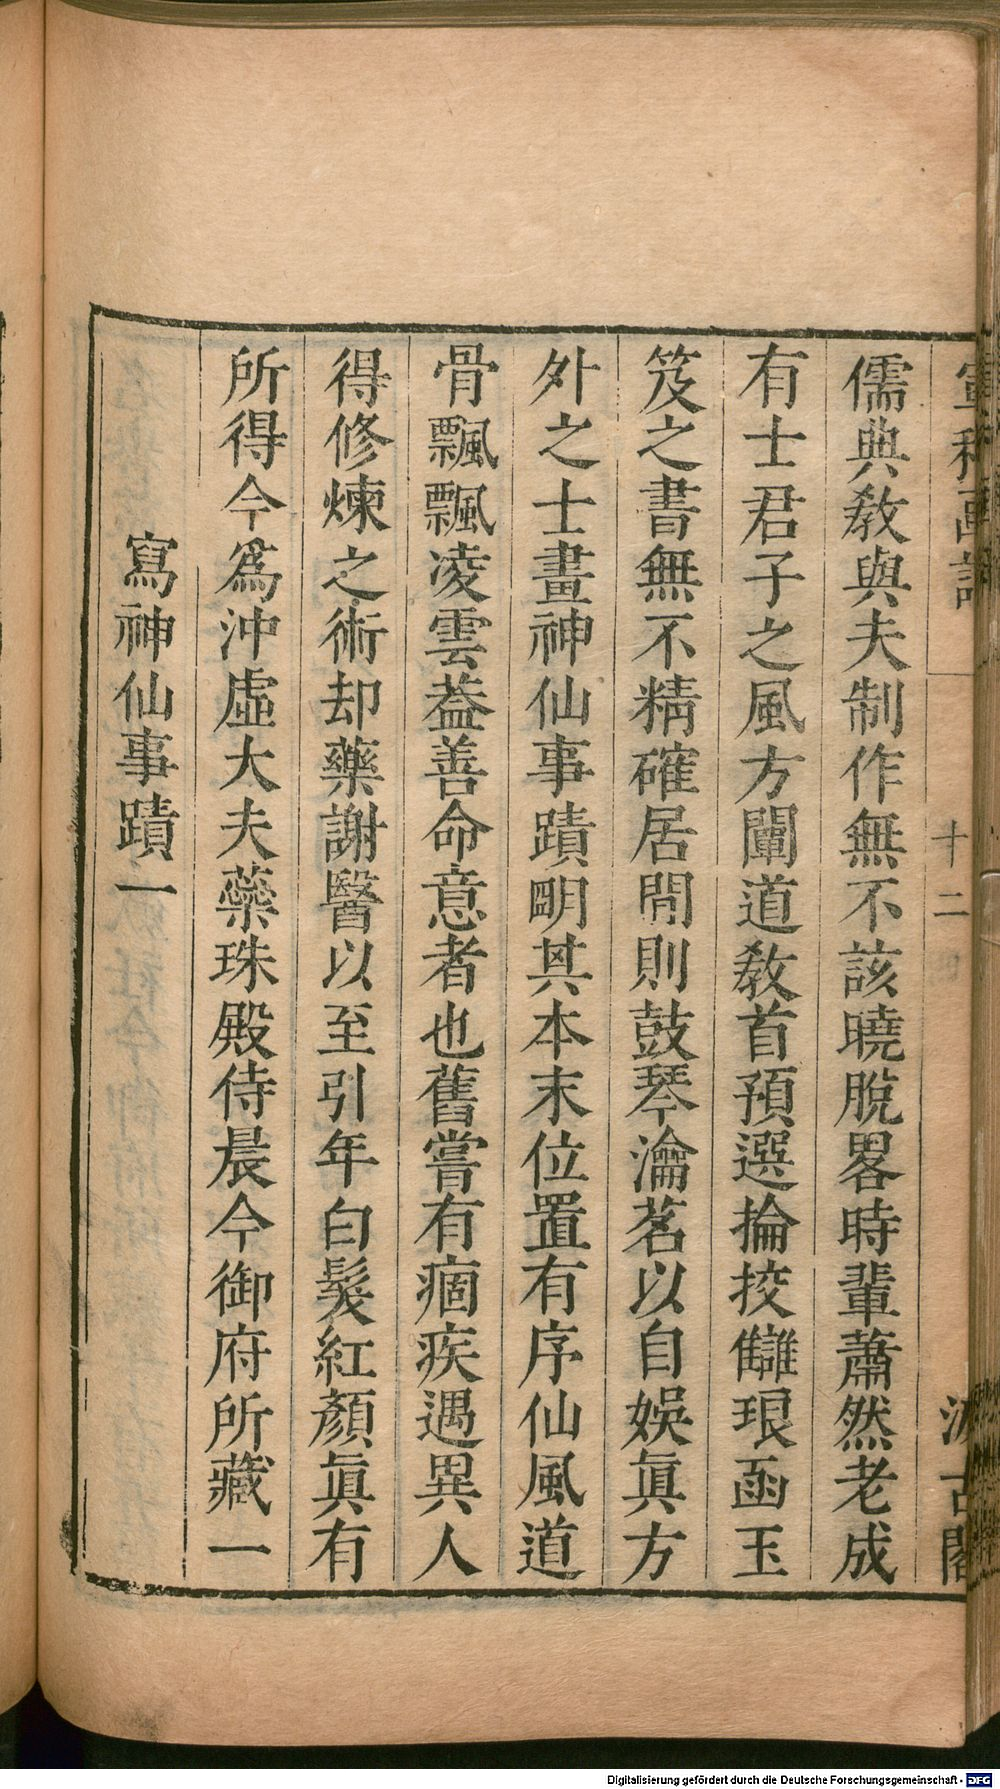 儒典教與夫制作無不該曉脫畧時輩蕭然老成
有士君子之風方闡道教首預選掄挍讎琅函玉
笈之書無不精確居閒則鼓琴瀹茗以自娛眞方
外之士畫神仙事蹟明其本末位置有序仙風道
骨飄飄凌雲葢善命意者也舊嘗有痼疾遇異人
得修煉之術却藥謝醫以至引年白髮紅顏眞有
所得今爲沖虛大夫蘂珠殿侍晨今御府所藏一
寫神仙事蹟一
十二
Digitalisierung gefördert durch die Deutsche Forschungsgemeinschaft - DFG